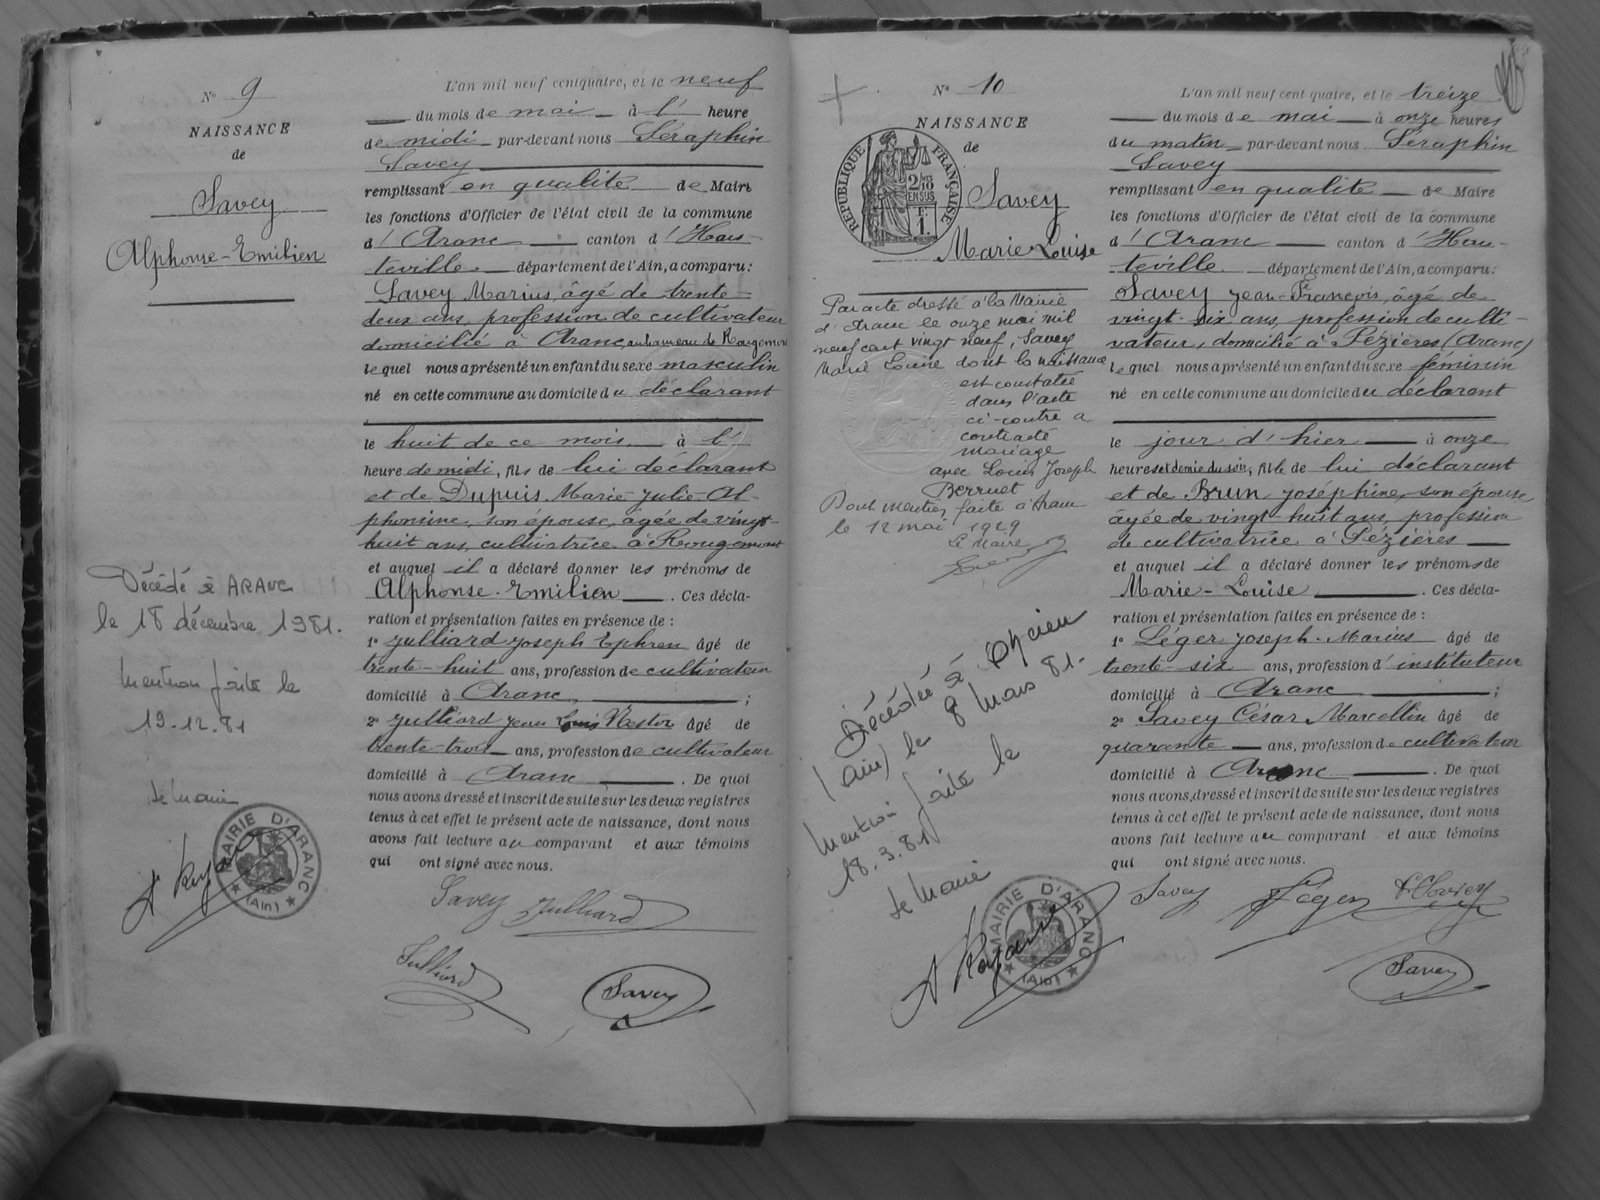 N° 9
NAISSANCE
de
Savey
Alphonse-Emilien
Décédé à ARANC
le 18 décembre 1981.
Mention faite le
19.12.81
Le Maire
MAIRIE D'ARANC
(Ain)
L'an mil neuf cent quatre, et le neuf
du mois de mai à l' heure
de midi par-devant nous Séraphin
Savey
remplissant en qualité de Maire
les fonctions d'Officier de l'état civil de la commune
d'Aranc canton d'Hau-
teville département de l'Ain, a comparu :
Savey Marius, âgé de trente-
deux ans, profession de cultivateur
domicilié à Aranc, au hameau de Rougemont
lequel nous a présenté un enfant du sexe masculin
né en cette commune au domicile du déclarant
le huit de ce mois à l'
heure de midi, fils de lui déclarant
et de Dupuis Marie-Julie-Al-
phonsine, son épouse, âgée de vingt-
huit ans, cultivatrice à Rougemont
et auquel il a déclaré donner les prénoms de
Alphonse-Emilien . Ces décla-
ration et présentation faites en présence de :
1° Julliard Joseph Ephrem âgé de
trente-huit ans, profession de cultivateur
domicilié à Aranc ;
2° Julliard Jean Nestor âgé de
trente-trois ans, profession de cultivateur
domicilié à Aranc . De quoi
nous avons dressé et inscrit de suite sur les deux registres
tenus à cet effet le présent acte de naissance, dont nous
avons fait lecture au comparant et aux témoins
qui ont signé avec nous.
Savey Julliard
Julliard Savey
N° 10
NAISSANCE
de
RÉPUBLIQUE FRANÇAISE
2/10 EN SUS
1 F.
Savey
Marie Louise
Par acte dressé à la Mairie
d'Aranc le onze mai mil
neuf cent vingt neuf, Savey
Marie Louise dont la naissance
est constatée
dans l'acte
ci-contre a
contracté
mariage
avec Louis Joseph
Berruet
Dont mention faite à Aranc
le 12 mai 1929
Le Maire
Décédée à Oyeu
(Ain) le 8 Mars 81.
Mention faite le
18.3.81
Le Maire
MAIRIE D'ARANC
(Ain)
L'an mil neuf cent quatre, et le treize
du mois de mai à onze heures
du matin par-devant nous Séraphin
Savey
remplissant en qualité de Maire
les fonctions d'Officier de l'état civil de la commune
d'Aranc canton d'Hau-
teville département de l'Ain, a comparu :
Savey Jean-François, âgé de
vingt-six ans, profession de culti-
vateur, domicilié à Pézières (Aranc)
lequel nous a présenté un enfant du sexe féminin
né en cette commune au domicile du déclarant
le jour d'hier à onze
heures et demie du soir, fille de lui déclarant
et de Brun Joséphine, son épouse,
âgée de vingt-huit ans, profession
de cultivatrice à Pézières
et auquel il a déclaré donner les prénoms de
Marie-Louise . Ces décla-
ration et présentation faites en présence de :
1° Léger Joseph-Marius âgé de
trente-six ans, profession d'instituteur
domicilié à Aranc ;
2° Savey César Marcellin âgé de
quarante ans, profession de cultivateur
domicilié à Aranc . De quoi
nous avons dressé et inscrit de suite sur les deux registres
tenus à cet effet le présent acte de naissance, dont nous
avons fait lecture au comparant et aux témoins
qui ont signé avec nous.
Savey Léger Savey
Savey